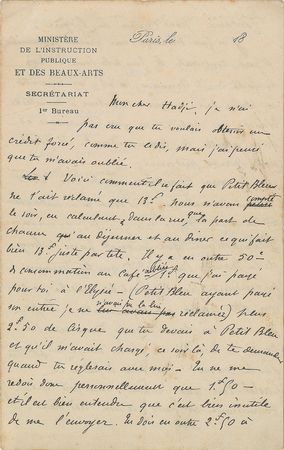 MINISTÈRE
DE L'INSTRUCTION
PUBLIQUE
ET DES BEAUX-ARTS
SECRÉTARIAT
1er Bureau
Paris, le 18
Mon cher Hadji, je n'ai
pas cru que tu voulais obtenir un
crédit forcé, comme tu le dis, mais j'ai pensé
que tu m'avais oublié.
Voici comment il se fait que Petit Bleu
ne t'ait réclamé que 13f. nous n'avons compté
le soir, en calculant dans la rue, que la part de
chacun au déjeuner et au dîner ce qui fait
bien 13f juste par tête. Il y a en outre 50c
de consommation au Café que j'ai payé
pour toi à l'Elysée - (Petit Bleu ayant payé
mon entrée je ne les réclamés) plus
2f.50 de Cirque que tu devais à Petit Bleu
et qu'il m'avait chargé, ce soir là, de te demander
quand tu règlerais avec moi - Tu ne me
redois donc personnellement que 1f50 -
et il est bien entendu que c'est bien inutile
de me l'envoyer. Tu dois en outre 2f.50 à